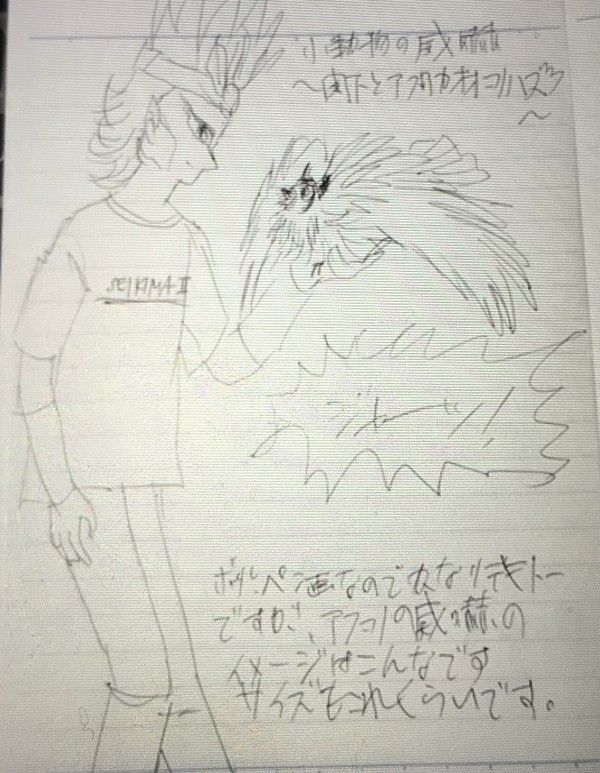 小動物の威嚇
〜閣下とアフリカオオコノハズク
〜
SEIKIMA II
ジャーッ!
ボールペン画なのでかなりテキトー
ですが、アフコノの威嚇の
イメージはこんなです
サイズもこれくらいです。